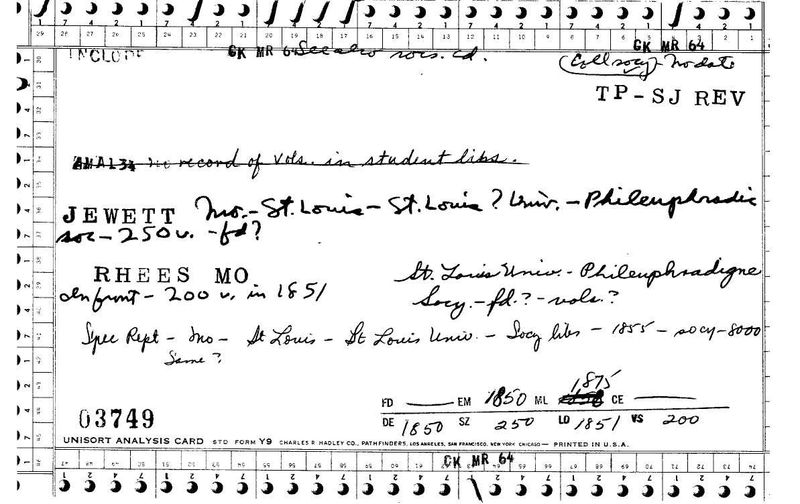 INCLUDE CK MR 64 See also socs. cd. CK MR 64
(Coll socy) - No date
TP-SJ REV
AMA134 no record of vols. in student libs.
JEWETT Mo. - St. Louis - St. Louis ? Univ. - Phileuphradic
soc - 250 v. - fd?
RHEES MO
In front - 200 v. in 1851
St. Louis Univ. - Phileuphradigne
Socy. - fd. ? - vols. ?
Spec Rept - Mo - St Louis - St Louis Univ. - Socy libs - 1855 - socy - 8000
Same ?
1,875
FD ____ EM 1850 ML CE ____
DE 1850 SZ 250 LD 1851 VS 200
03749
UNISORT ANALYSIS CARD STD FORM Y9 CHARLES R HADLEY CO., PATHFINDERS, LOS ANGELES, SAN FRANCISCO, NEW YORK CHICAGO — PRINTED IN U.S.A.
CK MR 64